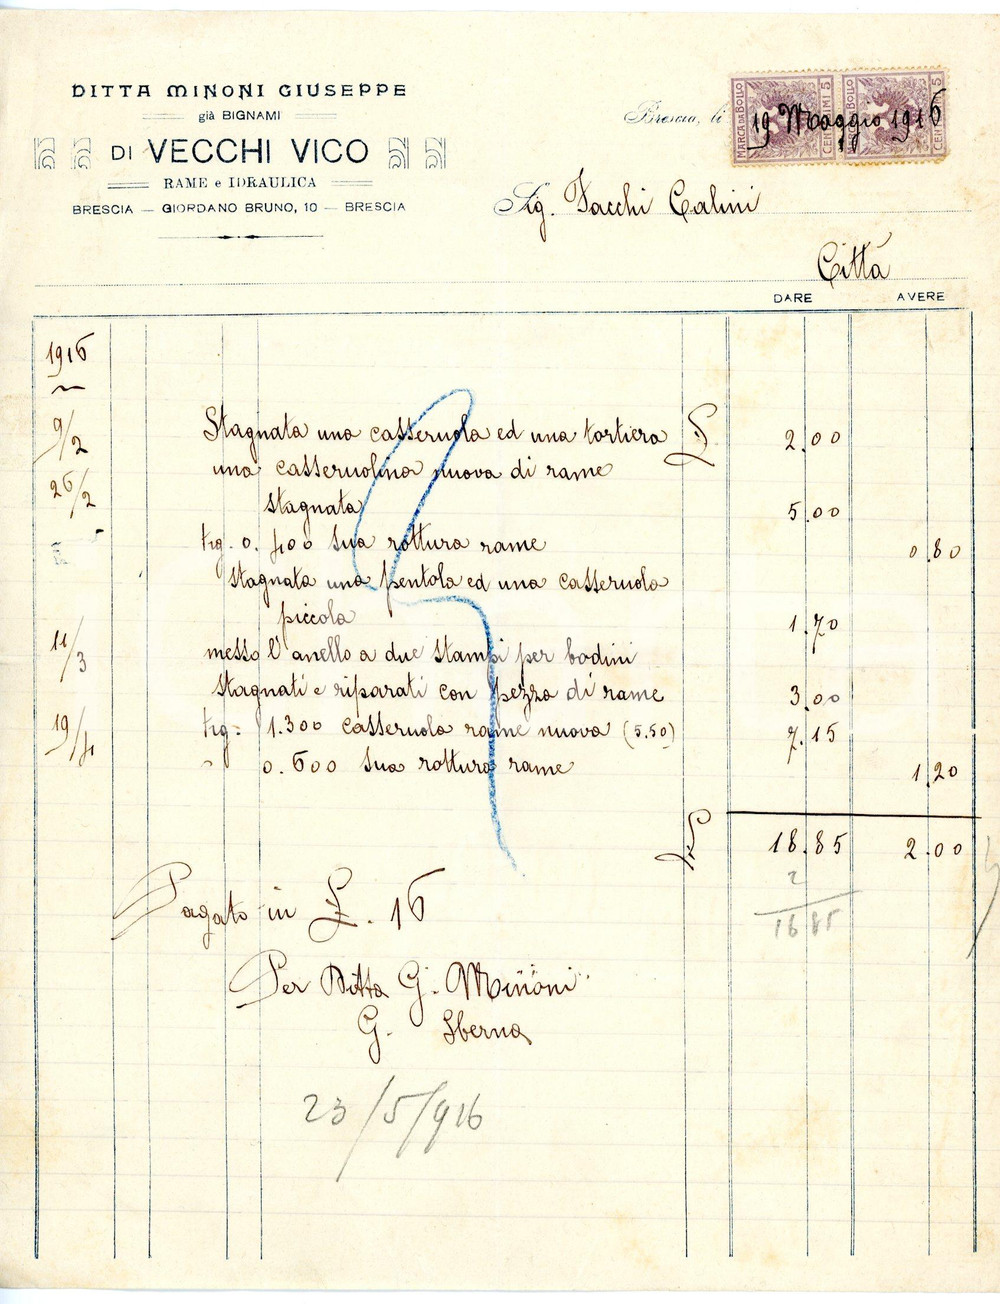 DITTA MINONI GIUSEPPE
già BIGNAMI
DI VECCHI VICO
RAME e IDRAULICA
BRESCIA — GIORDANO BRUNO, 10 — BRESCIA
Brescia, li 19 Maggio 1916
MARCA DA BOLLO CENTESIMI 5
MARCA DA BOLLO CENTESIMI 5
Sig. Facchi Calini
Città
DARE AVERE
1916
9/2 Stagnata una casseruola ed una tortiera £ 2.00
26/2 una casseruolina nuova di rame
stagnata 5.00
kg. 0.400 sua rottura rame 0.80
stagnata una pentola ed una casseruola
piccola 1.70
11/3 messo l'anello a due stampi per bodini
stagnati e riparati con pezzo di rame 3.00
19/4 kg. 1.300 casseruola rame nuova (5.50) 7.15
" 0.600 sua rottura rame 1.20
£ 18.85 2.00
2
16 85
Pagato in £. 16
Per Ditta G. Minoni
G. Sberna
23/5/916